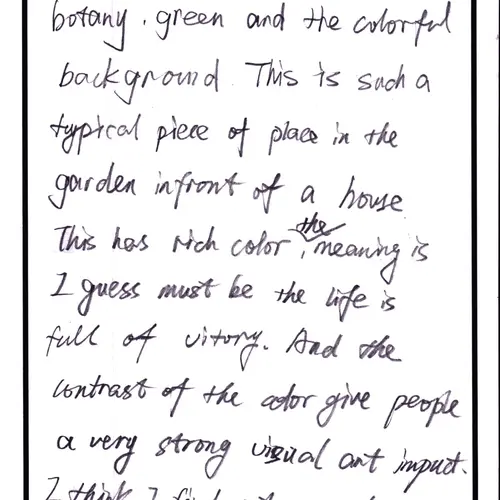 botany, green and the colorful
background. This is such a
typical piece of place in the
garden infront of a house
This has rich color, the meaning is
I guess must be the life is
full of vitory. And the
contrast of the color give people
a very strong visual ant impact.
I think I